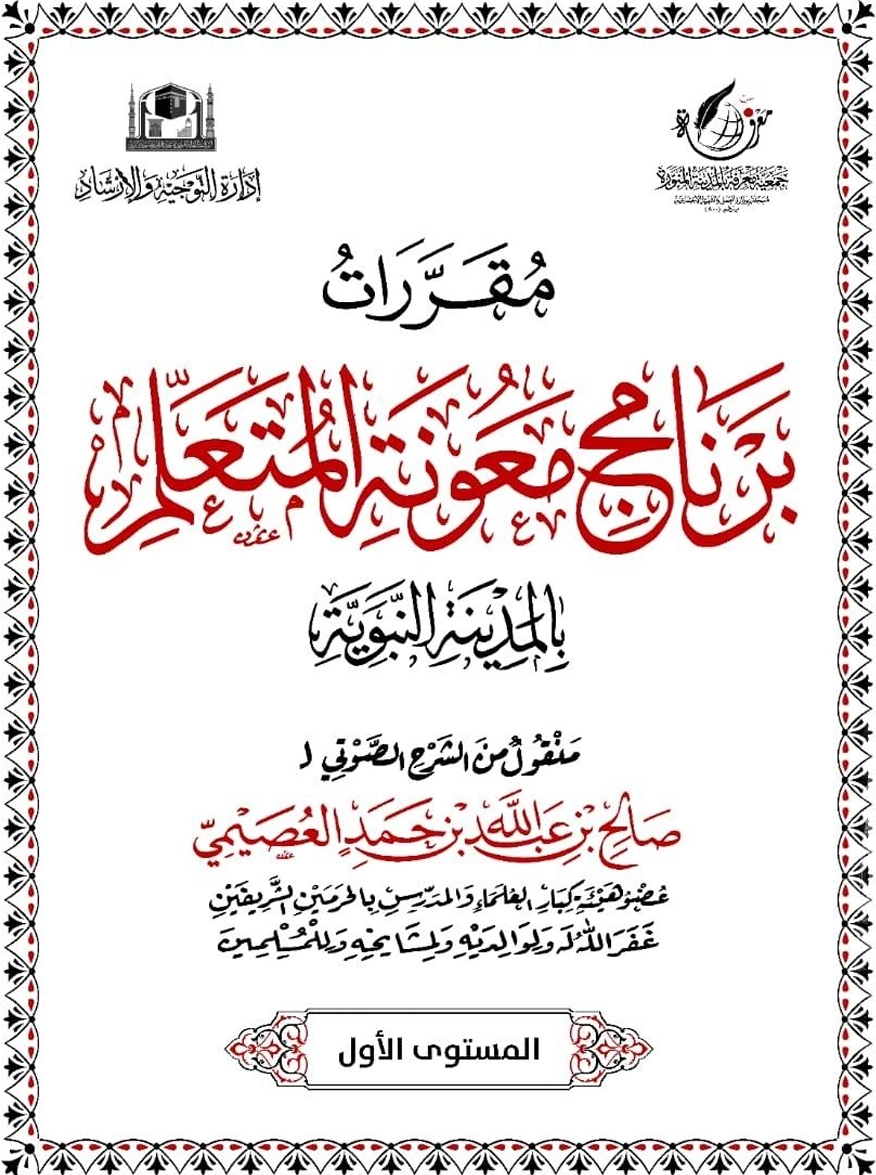 معرفة
جمعية معرفة بالمدينة المنورة
إدارة التوجيه والإرشاد
مُقَرَّرَاتُ
بَرْنَامَجِ مَعُونَةِ المُتَعَلِّمِ
بِالمَدِينَةِ النَّبَوِيَّةِ
مَنْقُولٌ مِنَ الشَّرْحِ الصَّوْتِي لـ
صَالِحِ بْنِ عَبْدِ اللَّهِ بْنِ حَمَدٍ العُصَيْمِيِّ
عُضْوُ هَيْئَةِ كِبَارِ العُلَمَاءِ وَالمَدَرِّسِ بِالحَرَمَيْنِ الشَّرِيفَيْنِ
غَفَرَ اللَّهُ لَهُ وَلِوَالِدَيْهِ وَلِمَشَايِخِهِ وَلِلْمُسْلِمِينَ
المستوى الأول